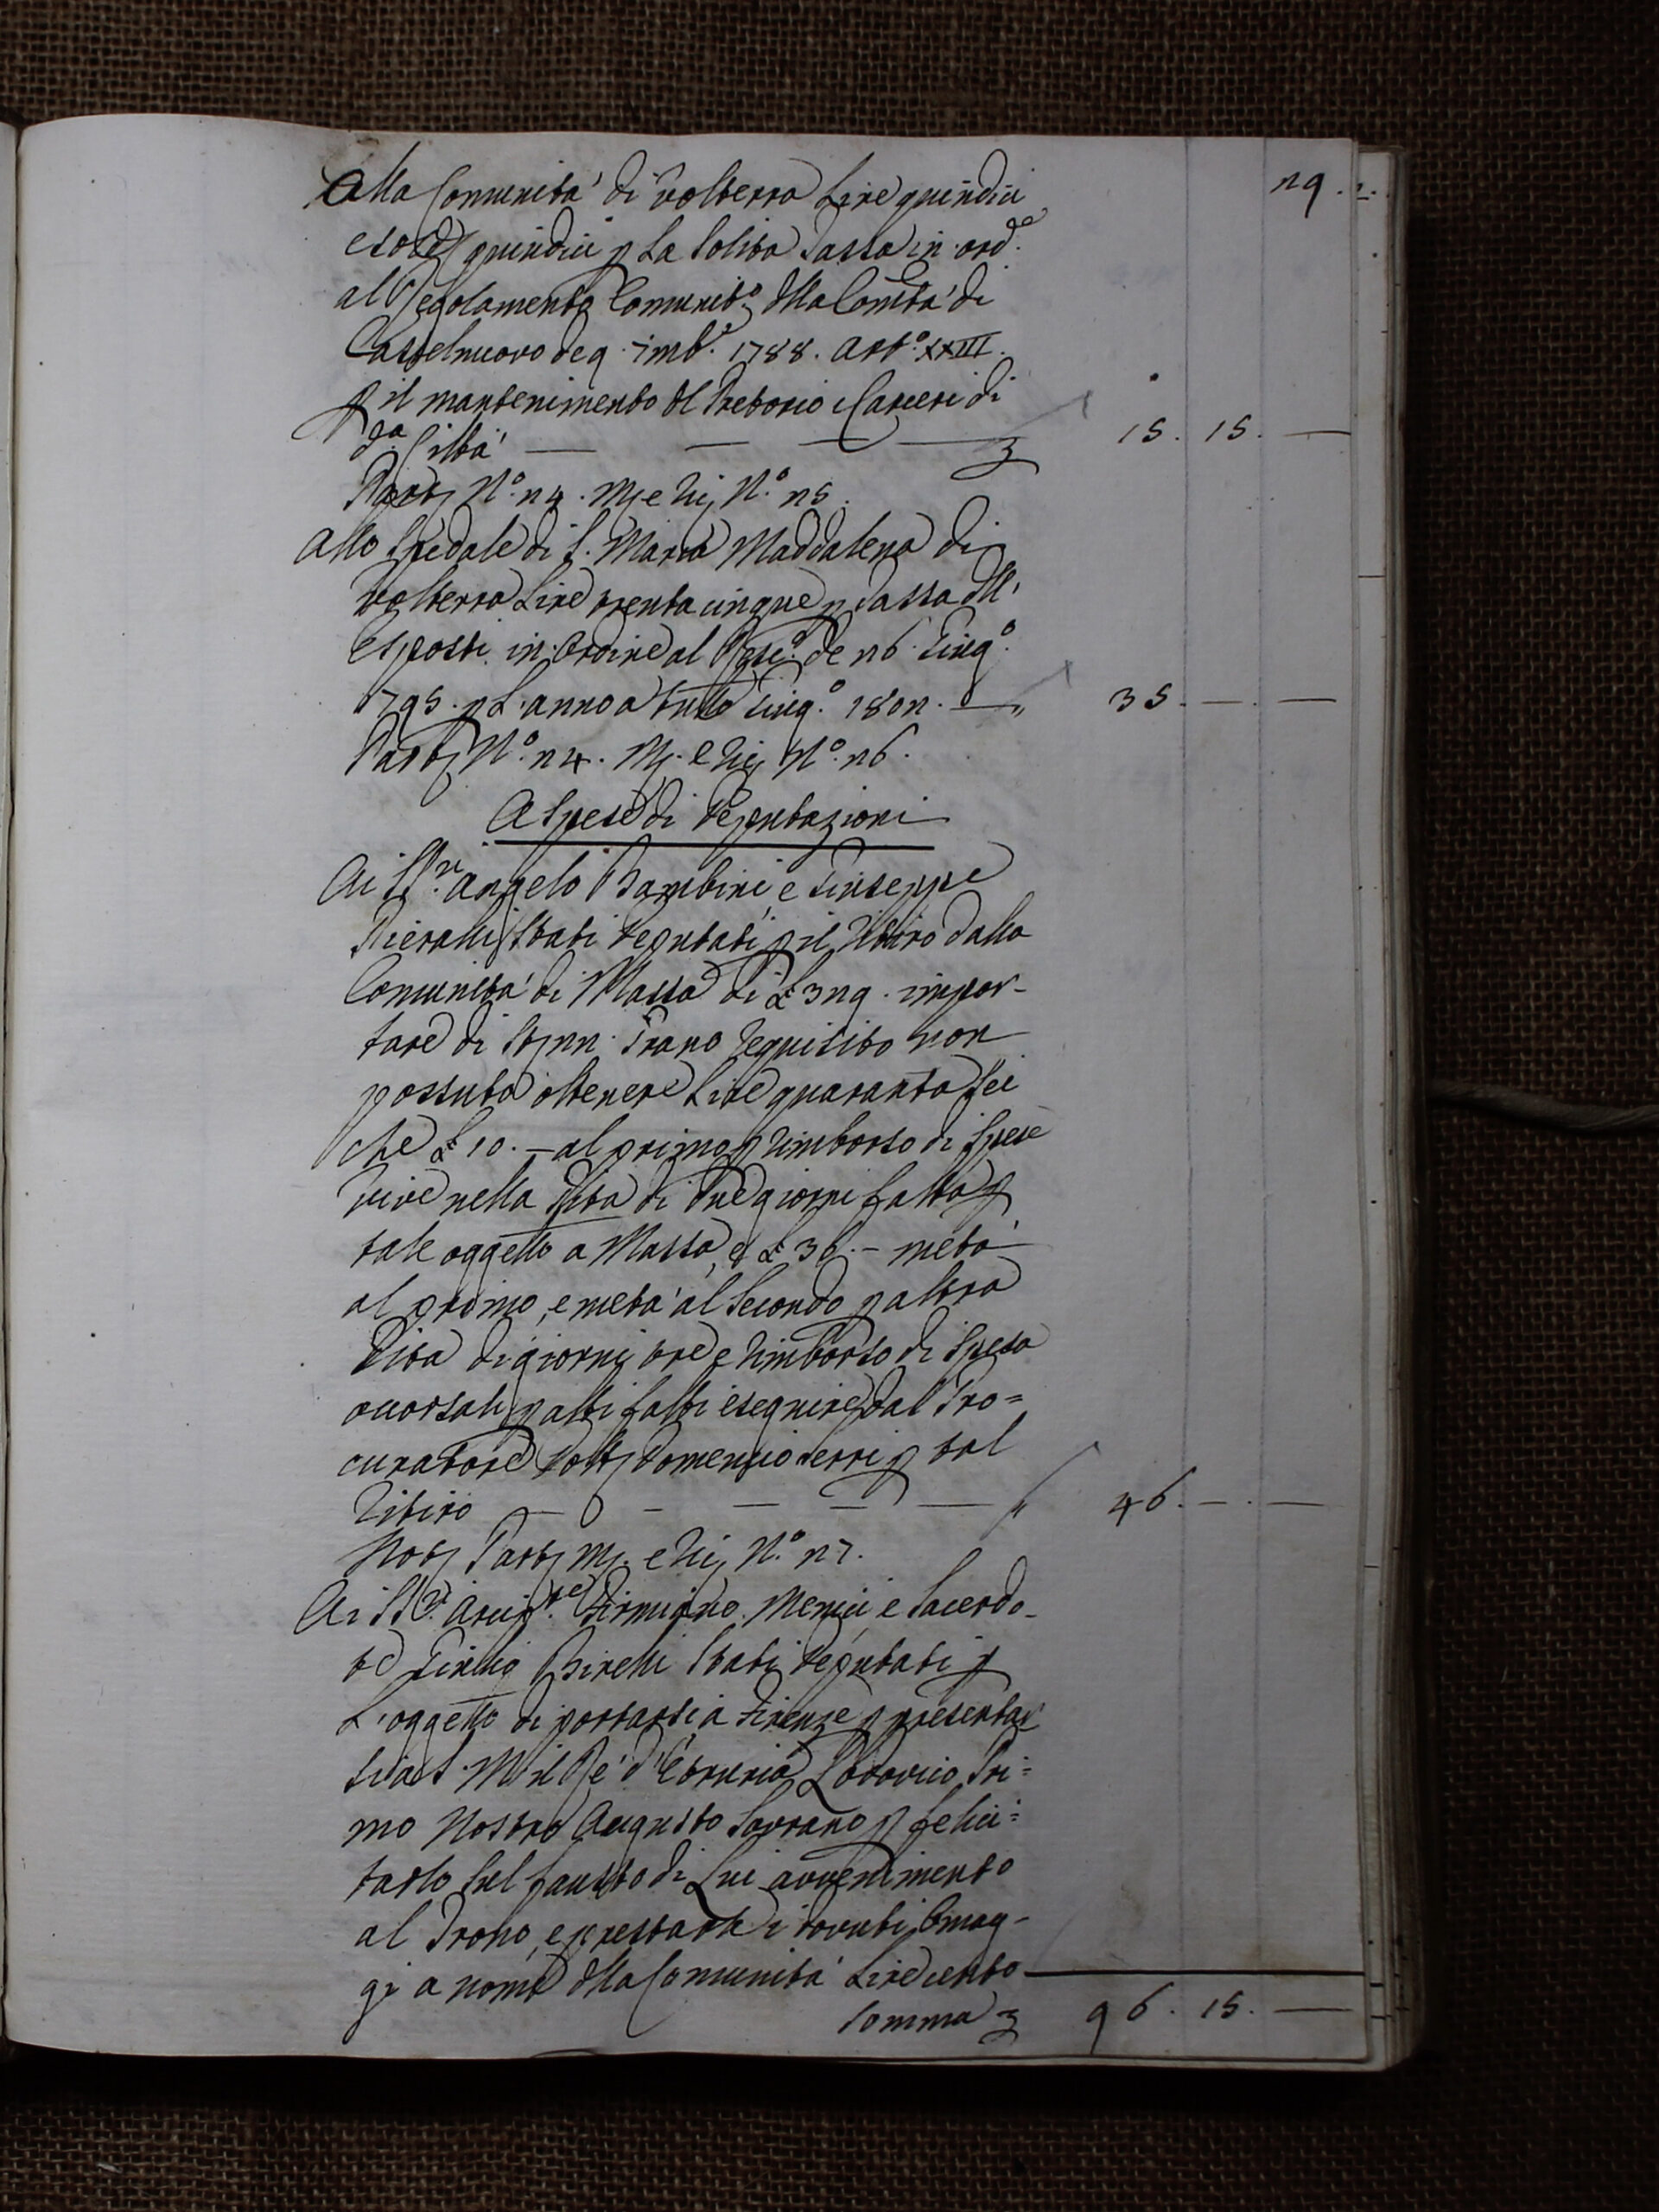 29.
Alla Comunità di Volterra Lire quindici
e soldi quindici p La Solita Tassa in ord.e
al Regolamento Comunit.o dlla Comtà di
Castelnuovo de 9. 7mb.e 1788. Art.o XXIII.
p il mantenimento dl Pretorio e Carceri di
d.a Città — — — — 15. 15. —
N.o 24. Mj e Rij N.o 25.
Allo Spedale di S. Maria Maddalena di
Volterra Lire trentacinque p Tassa dll'
Esposti in Ordine al de 26. Giug.o
1795. p L'anno a tutto Giug.o 1802. — „ 35. — . —
N.o 24. Mj. e Rij N.o 26.
A Spese di Deputazioni
Ai SS.ri Angelo Bambini, e Giuseppe
Pieralli Stati Deputati p il Ritiro dalla
Comunità di Massa di £ 329. impor-
tare di 22. Grano requisito non
possuto ottenere Lire quaranta Sei
che £ 10. — al primo p rimborso di Spese
vive nella Gita di due giorni fatta p
tale oggetto a Massa, e £ 36. — metà
al primo, e metà al Secondo p altra
Gita di giorni tre e rimborso di Spesa
p atti fatti eseguire dal Pro=
curatore Domenico Serri p tal
Ritiro — — — — — „ 46. — . —
Mj. e Rij N.o 27.
Ai SS.ri Arcip.te Firmiano Menici, e Sacerdo-
te Giulio Birelli Stati Deputati p
L'oggetto di portarsi a Firenze p presentar
si a S. M. il Re d'Etruria Lodovico Pri=
mo Nostro Augusto Sovrano p felici=
tarlo Sul fausto di Lui avvenimento
al Trono, e prestarle i dovuti Omag-
gi a nome dlla Comunità Lire cento
Somma 96. 15. —